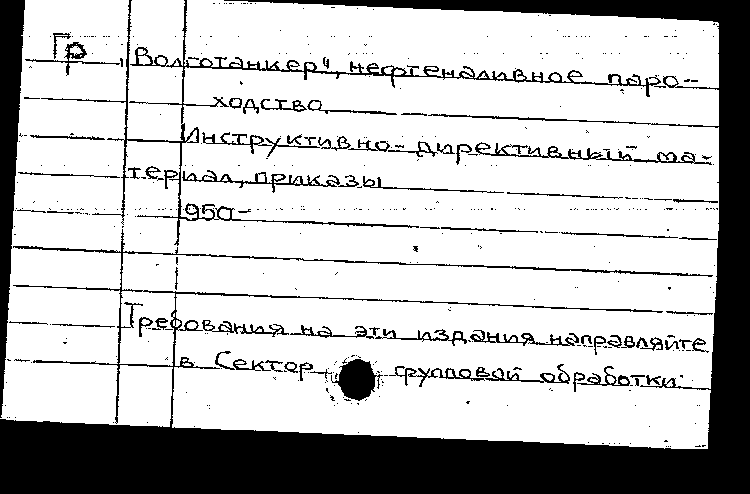 Гр „Волготанкер", нефтеналивное паро-
ходство.
Инструктивно-директивный ма-
териал, приказы
1950-
Требования на эти издания направляйте
в Сектор групповой обработки.